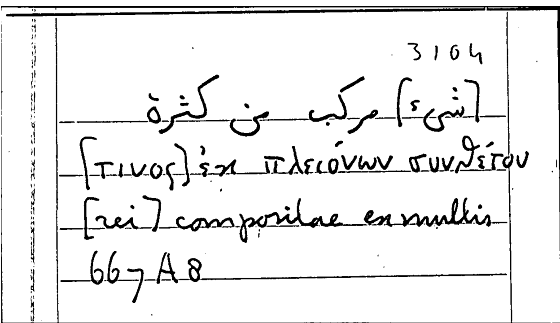 3104
[شيء] مركب من كثرة
[τινος] ἐκ πλειόνων συνθέτου
[rei] compositae ex multis
667 A 8